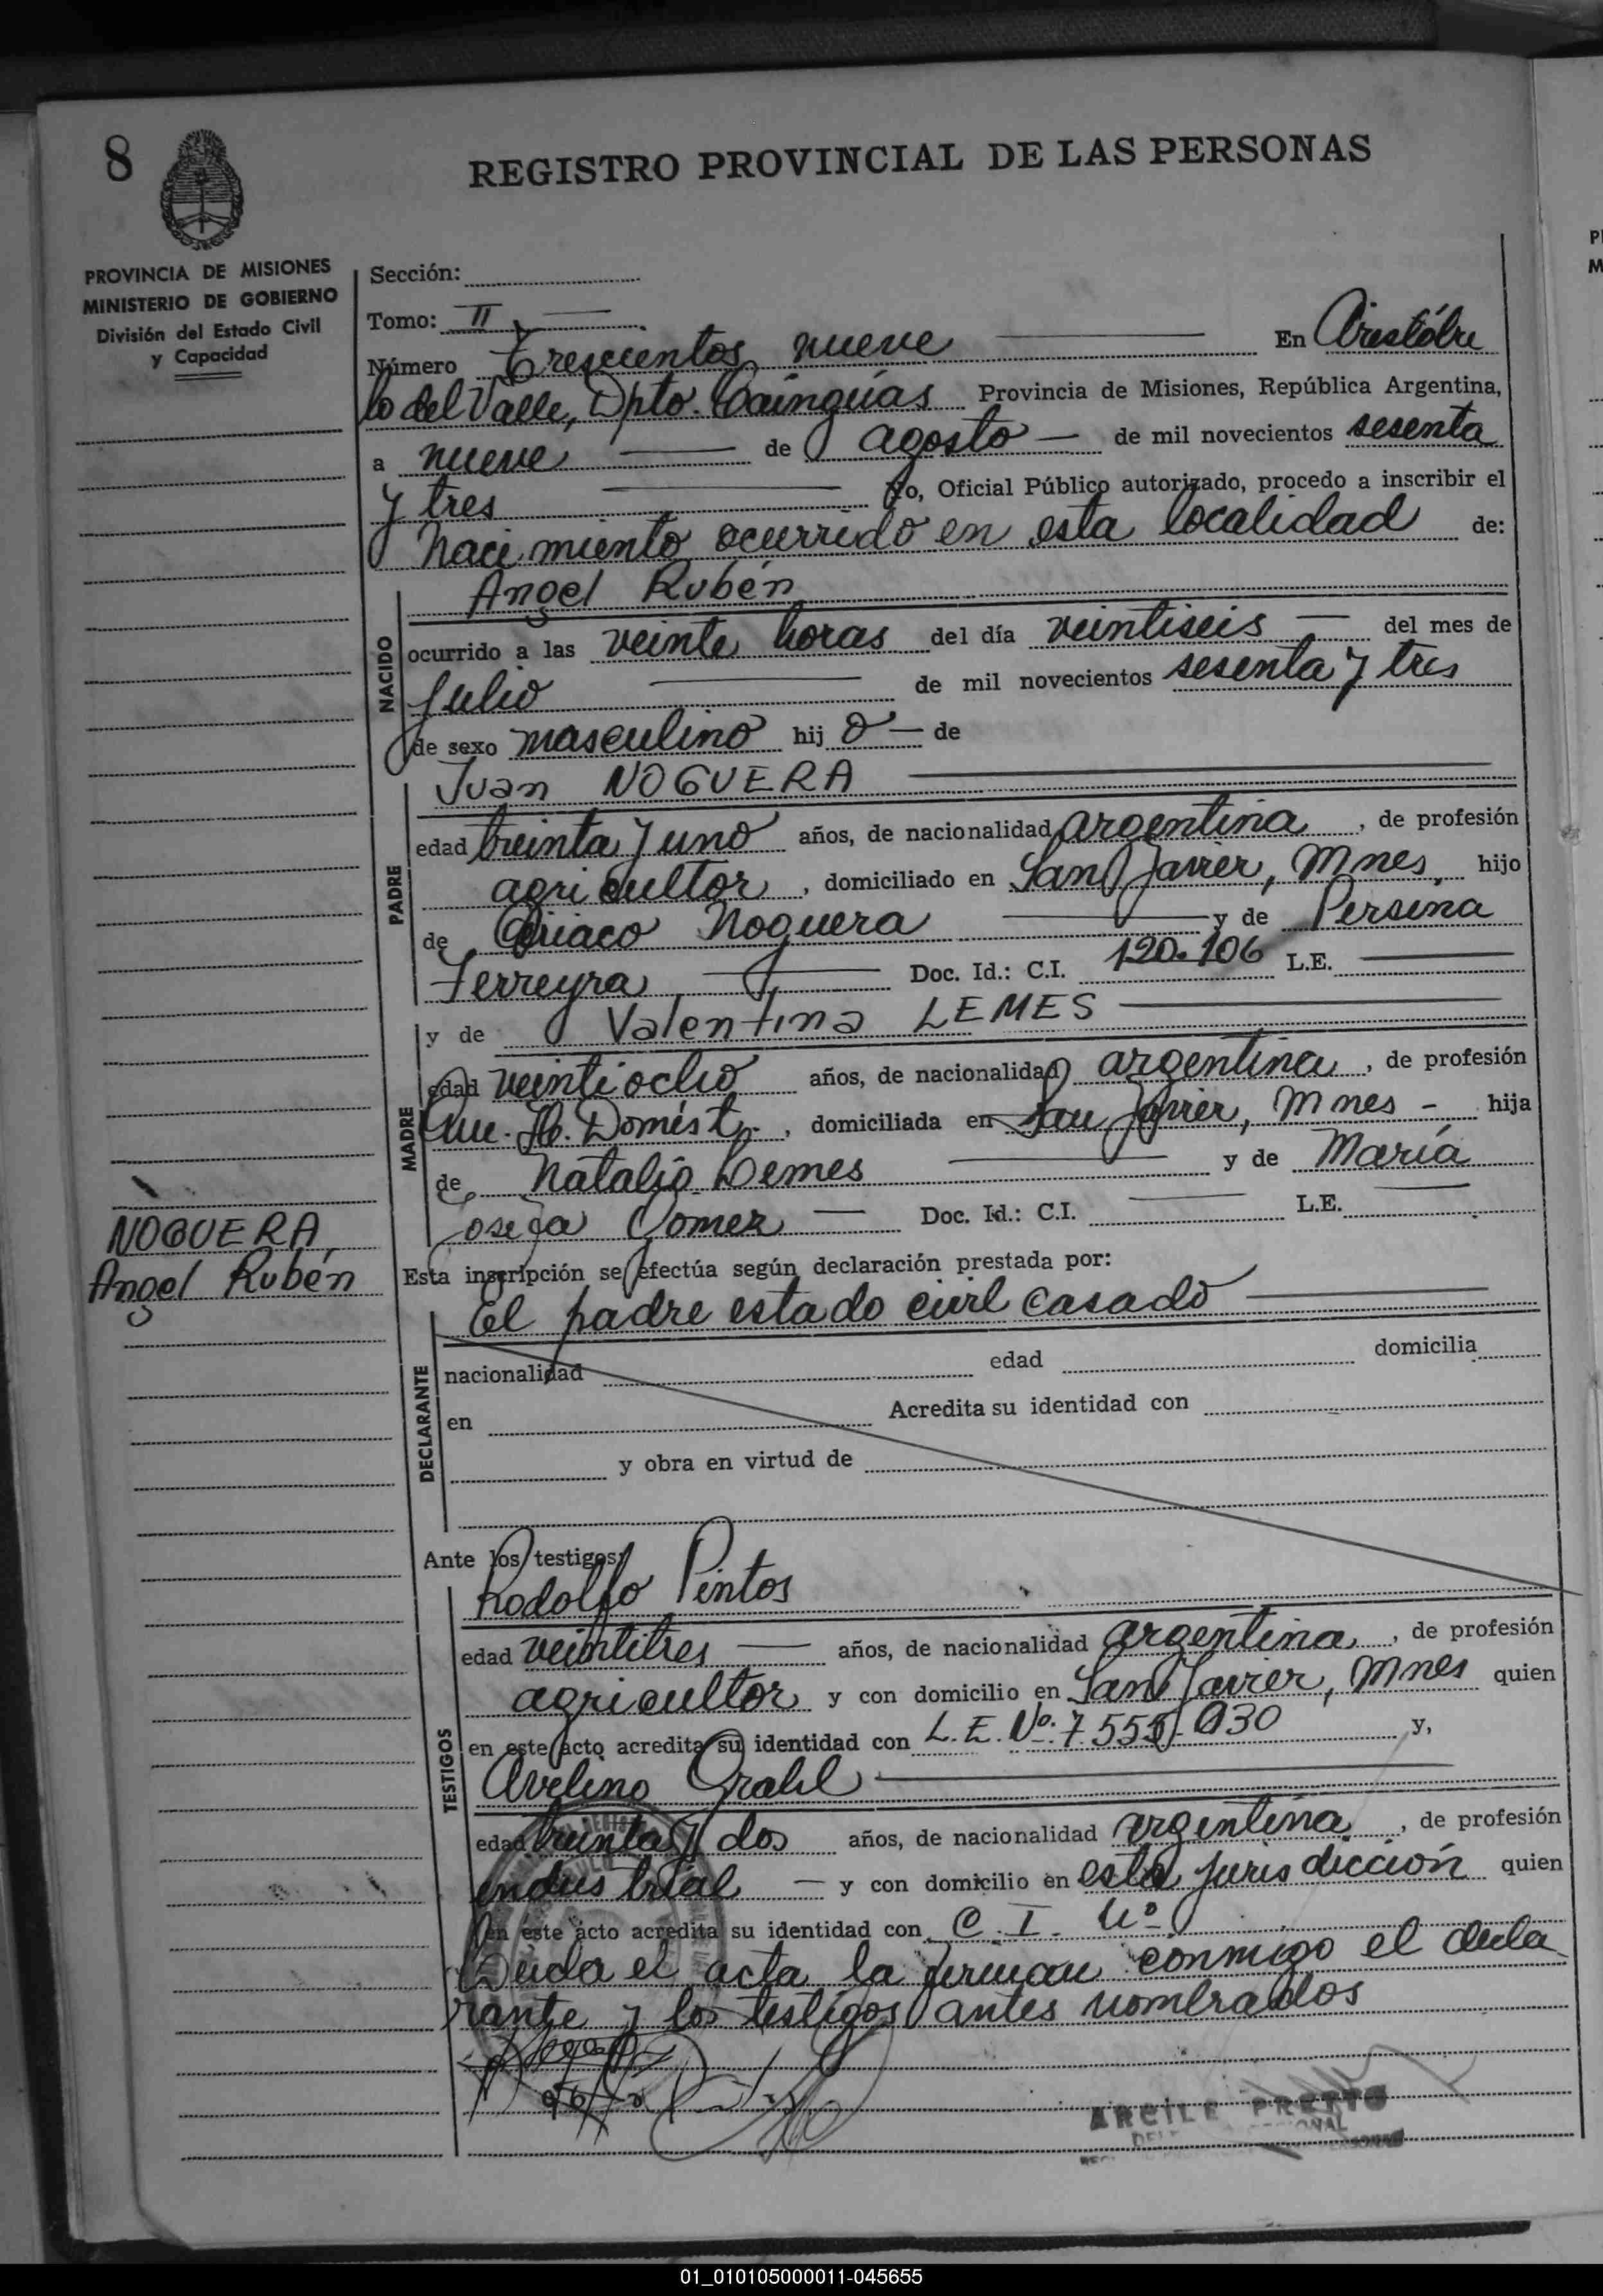 8
REGISTRO PROVINCIAL DE LAS PERSONAS
PROVINCIA DE MISIONES
MINISTERIO DE GOBIERNO
División del Estado Civil
y Capacidad
Sección:
Tomo: II
Número Trescientos nueve En Aristóbu
lo del Valle, Dpto. Cainguas Provincia de Misiones, República Argentina,
a nueve de agosto de mil novecientos sesenta
y tres Yo, Oficial Público autorizado, procedo a inscribir el
nacimiento ocurrido en esta localidad de:
NACIDO
Angel Rubén
ocurrido a las veinte horas del día veintiseis del mes de
Julio de mil novecientos sesenta y tres
de sexo masculino hij o de
PADRE
Juan NOGUERA
edad treinta y uno años, de nacionalidad argentina, de profesión
agricultor, domiciliado en San Javier, Mnes, hijo
de Ciriaco Noguera y de Persina
Ferreyra Doc. Id.: C.I. 120.106 L.E.
y de Valentina LEMES
MADRE
edad veintiocho años, de nacionalidad argentina, de profesión
Que. H. Domést., domiciliada en San Javier, Mnes - hija
de Natalio Lemes y de María
Josefa Gomez Doc. Id.: C.I. L.E.
NOGUERA
Angel Rubén
Esta inscripción se efectúa según declaración prestada por:
DECLARANTE
El padre estado civil casado
nacionalidad edad domicilia
en Acredita su identidad con
y obra en virtud de
Ante los testigos:
TESTIGOS
Rodolfo Pintos
edad veintitres años, de nacionalidad argentina, de profesión
agricultor y con domicilio en San Javier, Mnes quien
en este acto acredita su identidad con L.E. Nº. 7.555.030 y,
Avelino Grahl
edad treinta y dos años, de nacionalidad argentina, de profesión
industrial y con domicilio en esta jurisdicción quien
en este acto acredita su identidad con C.I. Nº
Leida el acta la firman conmigo el decla
rante y los testigos antes nombrados
ARCILE PRETTO
01_010105000011-045655